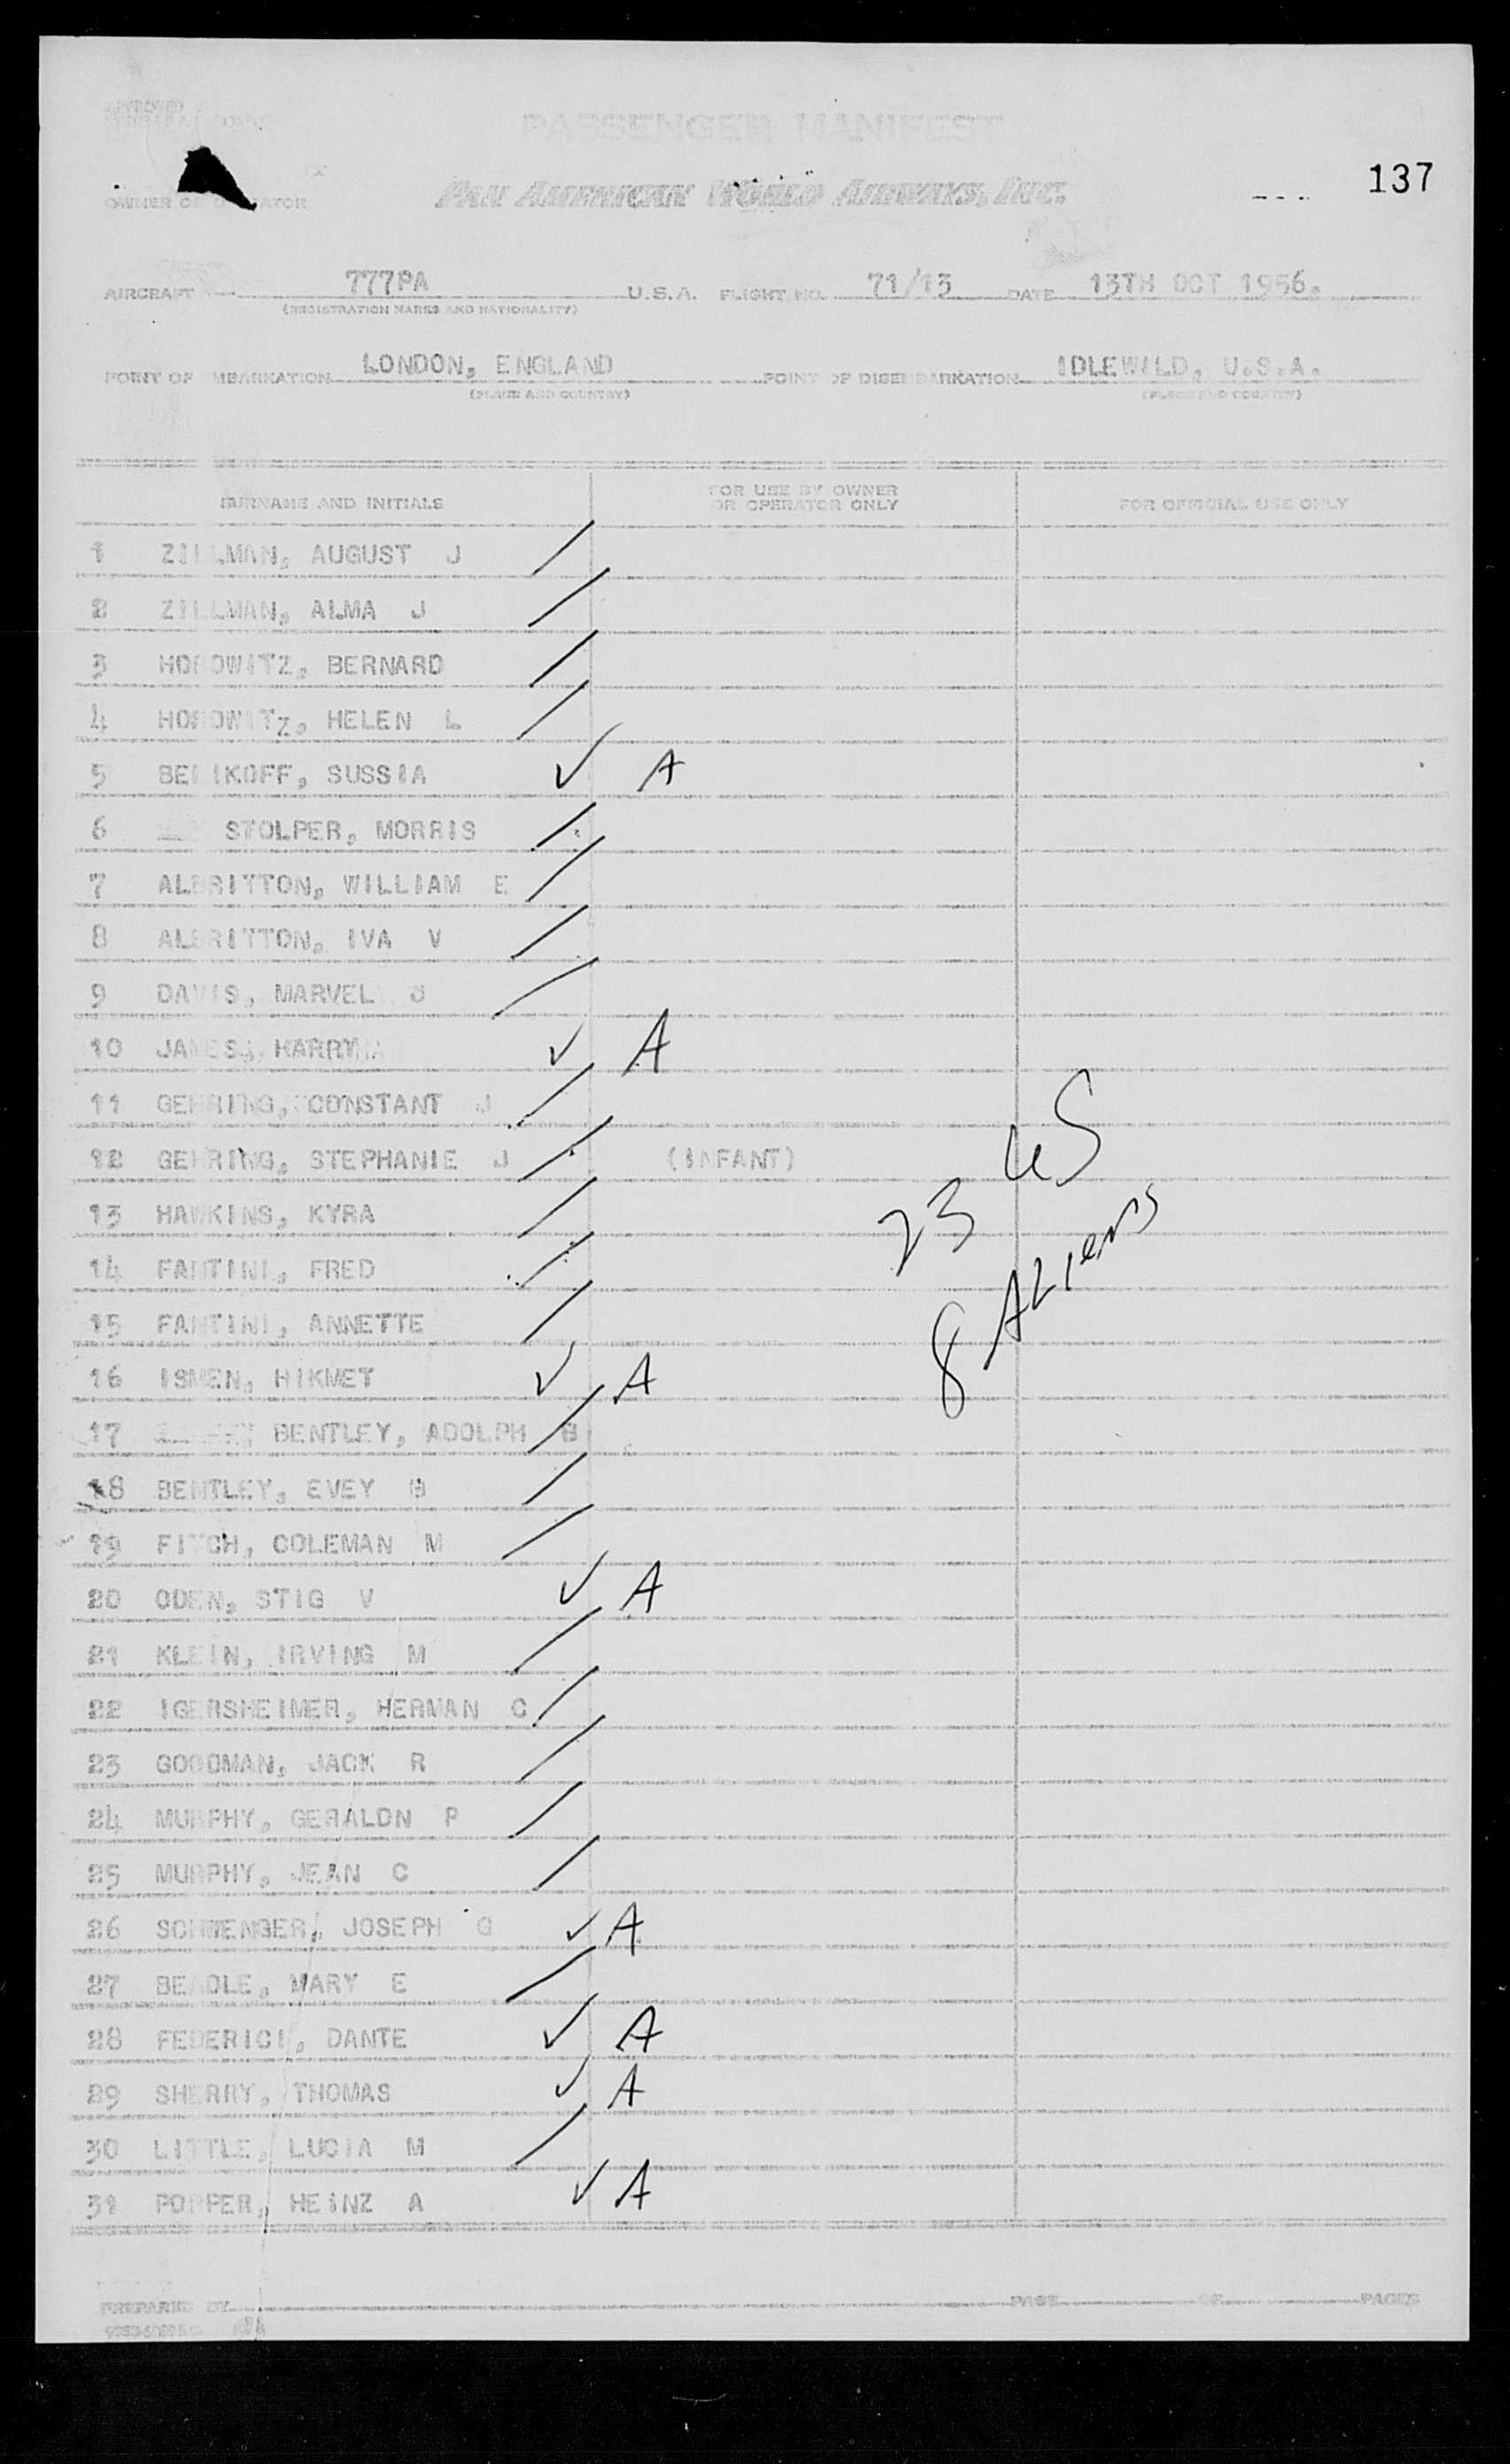 137
APPROVED
PASSENGER MANIFEST
OWNER OR OPERATOR
PAN AMERICAN WORLD AIRWAYS, INC.
AIRCRAFT 777PA U.S.A. FLIGHT NO. 71/13 DATE 13TH OCT 1956.
(REGISTRATION MARKS AND NATIONALITY)
POINT OF EMBARKATION LONDON, ENGLAND POINT OF DISEMBARKATION IDLEWILD, U.S.A.
(PLACE AND COUNTRY) (PLACE AND COUNTRY)
SURNAME AND INITIALS FOR USE BY OWNER OR OPERATOR ONLY FOR OFFICIAL USE ONLY
1 ZILLMAN, AUGUST J
2 ZILLMAN, ALMA J
3 HOROWITZ, BERNARD
4 HOROWITZ, HELEN L
5 BELIKOFF, SUSSIA ✓ A
6 STOLPER, MORRIS
7 ALBRITTON, WILLIAM E
8 ALBRITTON, IVA V
9 DAVIS, MARVEL
10 JAMES, HARRY ✓ A
11 GEHRING, CONSTANT J
12 GEHRING, STEPHANIE J (INFANT)
13 HAWKINS, KYRA
14 FANTINI, FRED
15 FANTINI, ANNETTE
16 ISMEN, HIKMET ✓ A
17 BENTLEY, ADOLPH B
18 BENTLEY, EVEY B
19 FITCH, COLEMAN M
20 ODEN, STIG V ✓ A
21 KLEIN, IRVING M
22 IGERSHEIMER, HERMAN C
23 GOODMAN, JACK R
24 MURPHY, GERALDN P
25 MURPHY, JEAN C
26 SCHWENGER, JOSEPH G ✓ A
27 BEADLE, MARY E
28 FEDERICI, DANTE ✓ A
29 SHERRY, THOMAS ✓ A
30 LITTLE, LUCIA M
31 POPPER, HEINZ A ✓ A
23 US
8 Aliens
PREPARED BY PAGE OF PAGES